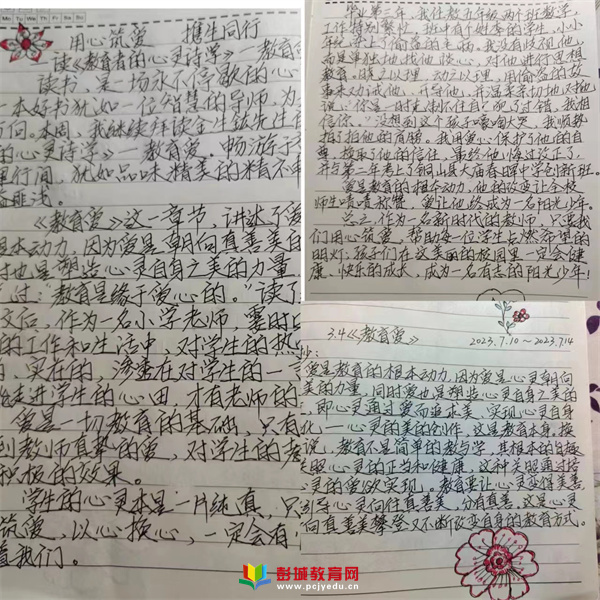 用心筑爱 携手同行
读《教育者的心灵诗学》—教育爱
读书，是一场永不停歇的心
一本好书犹如一位智慧的导师，为
方向。本周，我继续拜读金生鈜先生
的心灵诗学》—教育爱，畅游于
里行间，犹如品味精美的精
《教育爱》这一章节，讲述了爱
根本动力，因为爱是朝向真善美的
时也是塑造心灵自身之美的力量
过："教育是缘于爱心的。"读了
文后，作为一名小学老师，要时
的工作和生活中，对学生的热
的，实在的，渗透在对学生的一
走进学生的心田，才有老师的
爱是一切教育的基础，只有
到教师真挚的爱，对学生的
积极的效果。
学生的心灵本是一片纯真，只
筑爱，以心换心，一定会有
着我们。
毕业第二年，我任教九年级两个班数学
工作特别繁忙，班中有个姓李的学生，小小
年纪染上了偷盗的毛病，我没有歧视他，
而是单独地找他谈心，对他进行思想
教育，晓之以理，动之以理，用偷盗的故
事来劝诫他，开导他，并温柔亲切地对他
说："你是一时走进怀住自己犯了过错，我相
信你。"没想到这个孩子嚎啕大哭，我顺势
拍了拍他的肩膀。我用爱心保护了他的自
尊，换取了他的信任，最终他悔过改正了，
并与第二年考上了铜山县大庙春晖中学创新班。
爱是教育的根本动力，他的改变让全校
师生啧啧称赞，爱让他终成为一名阳光少年。
总之，作为一名新时代的教师，只要我
们用心筑爱，帮助每一位学生点燃希望的
明灯，孩子们在这美丽的校园里一定会健
康、快乐的成长，成为一名有志的阳光少年！
3.4《教育爱》 2023.7.10～2023.7.14
爱是教育的根本动力，因为爱是心灵朝向
美的力量，同时爱也是塑造心灵自身之美的
，即心灵通过爱而追求美，实现心灵自身
化—心灵的美的创作，这是教育本身。换
说，教育不是简单的教与学，其根本的目标
关照心灵的正当和健康，这种关照通过培
心灵的爱欲实现。教育要让心灵变得美善
引导心灵向往真善美，分有真善，这是心灵
向真善美攀登又不断改变自身的教育方式。
彭城教育网
www.pcjyedu.cn